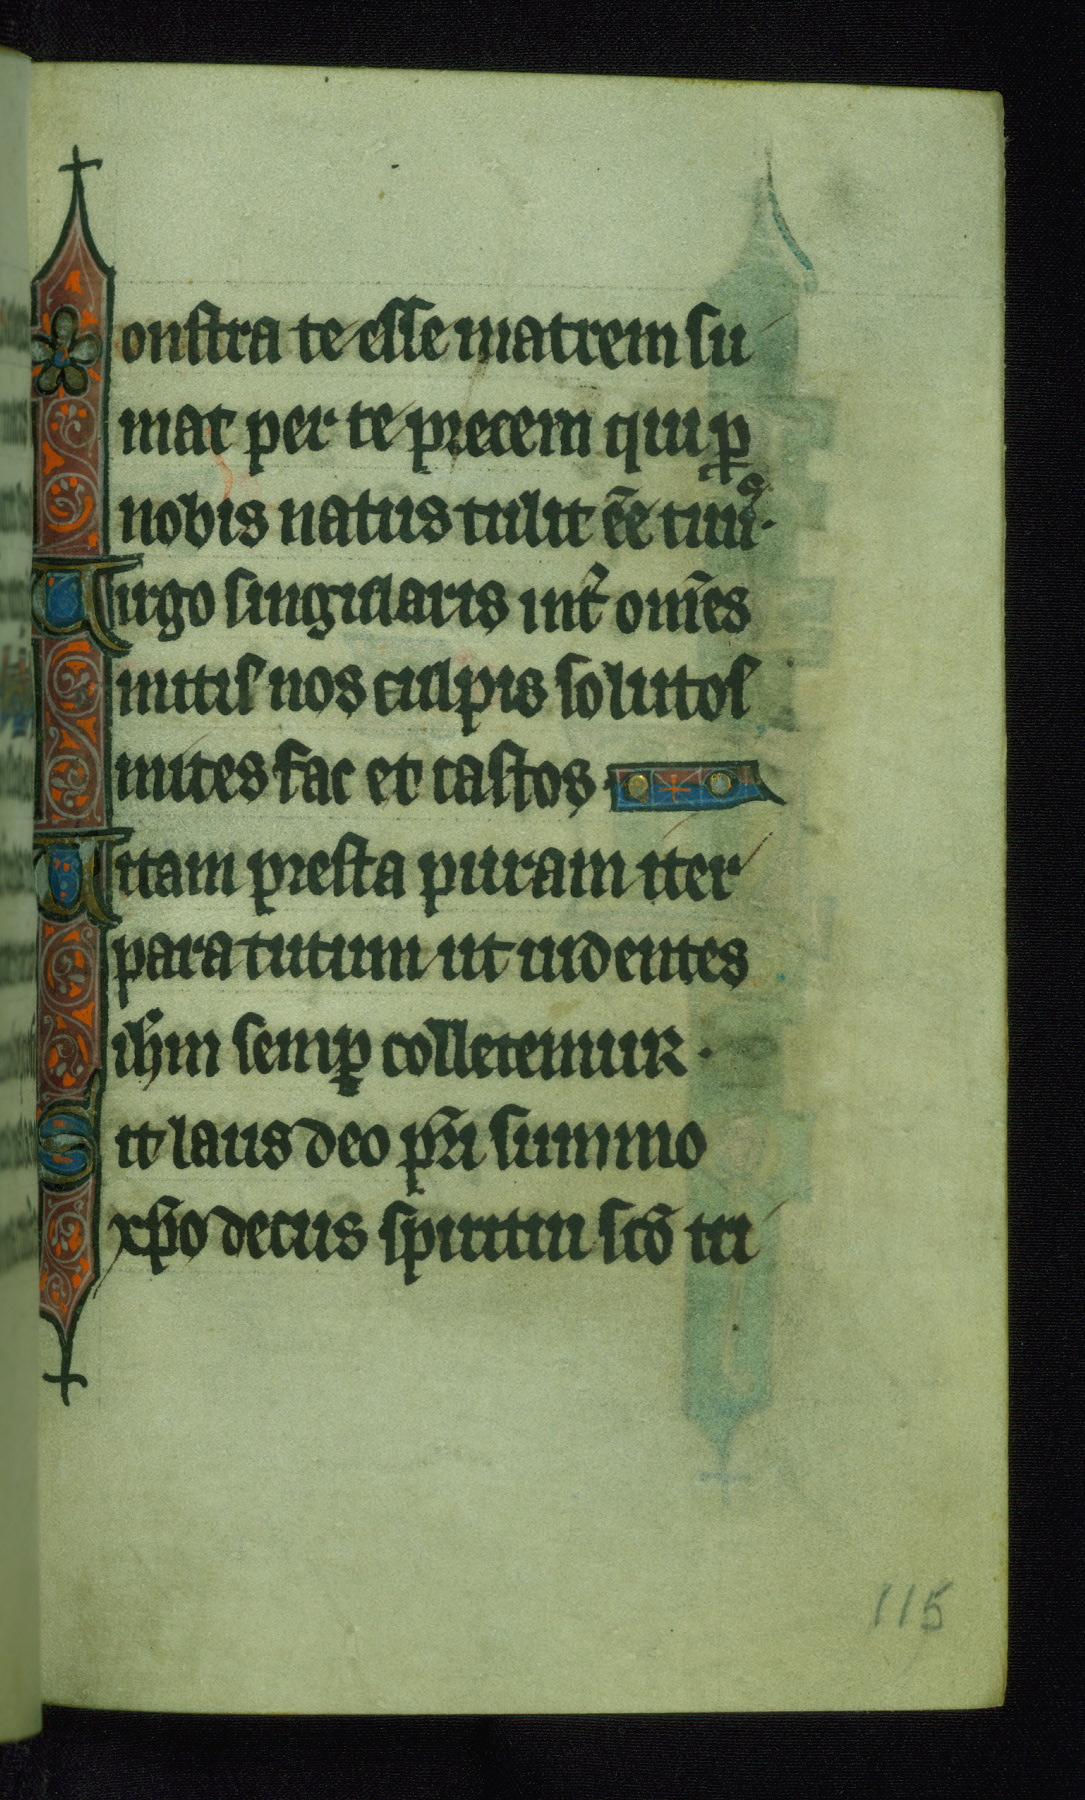 onstra te esse matrem su
mat per te precem qui ꝑ
nobis natus tulit ēe tuuſ.
Uirgo singularis int̉ om̄es
mitis nos culpis solutos
mites fac et castos
Uitam presta puram iter
para tutum ut uidentes
ih̄m semꝑ colletemur .
Sit laus deo pr̄i summo
xp̄o decus spiritui sc̄o tri
115